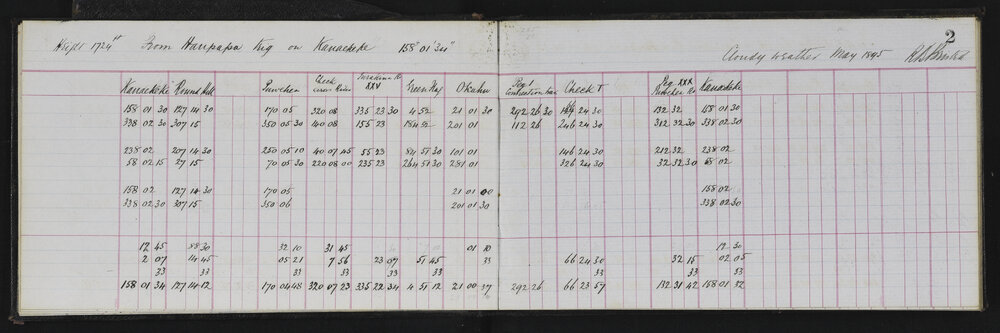 2
Height 1724ft From Haupapa Trig on Kanaekeke 158° 01' 34"
Cloudy weather May 1895
Kanaekeke Round Hill Puwehen Check Cross River XXV Green Flag Okahu Peg 1 Connection Check T Peg XXX Kanaekeke
158 01 30 127 14 30 170 05 320 08 335 23 30 4 52 21 01 30 292 26 30 24 30 132 32 158 01 30
338 02 30 307 15 350 05 30 140 08 155 23 184 52 201 01 112 26 246 24 30 312 32 30 338 02 30
238 02 207 14 30 250 05 10 40 07 45 55 23 84 51 30 101 01 146 24 30 212 32 238 02
58 02 15 27 15 70 05 30 220 08 00 235 23 264 51 30 281 01 326 24 30 32 32 30 68 02
158 02 127 14 30 170 05 21 01 00 158 02
338 02 30 307 15 350 06 201 01 30 338 02 30
12 45 88 30 32 10 31 45 01 10 12 30
2 07 14 45 05 21 7 56 23 07 51 45 33 66 24 30 32 15 02 05
33 33 33 33 33 33 33 33 33
158 01 34 127 14 12 170 04 48 320 07 23 335 22 34 4 51 12 21 00 37 292 26 66 23 57 132 31 42 158 01 32